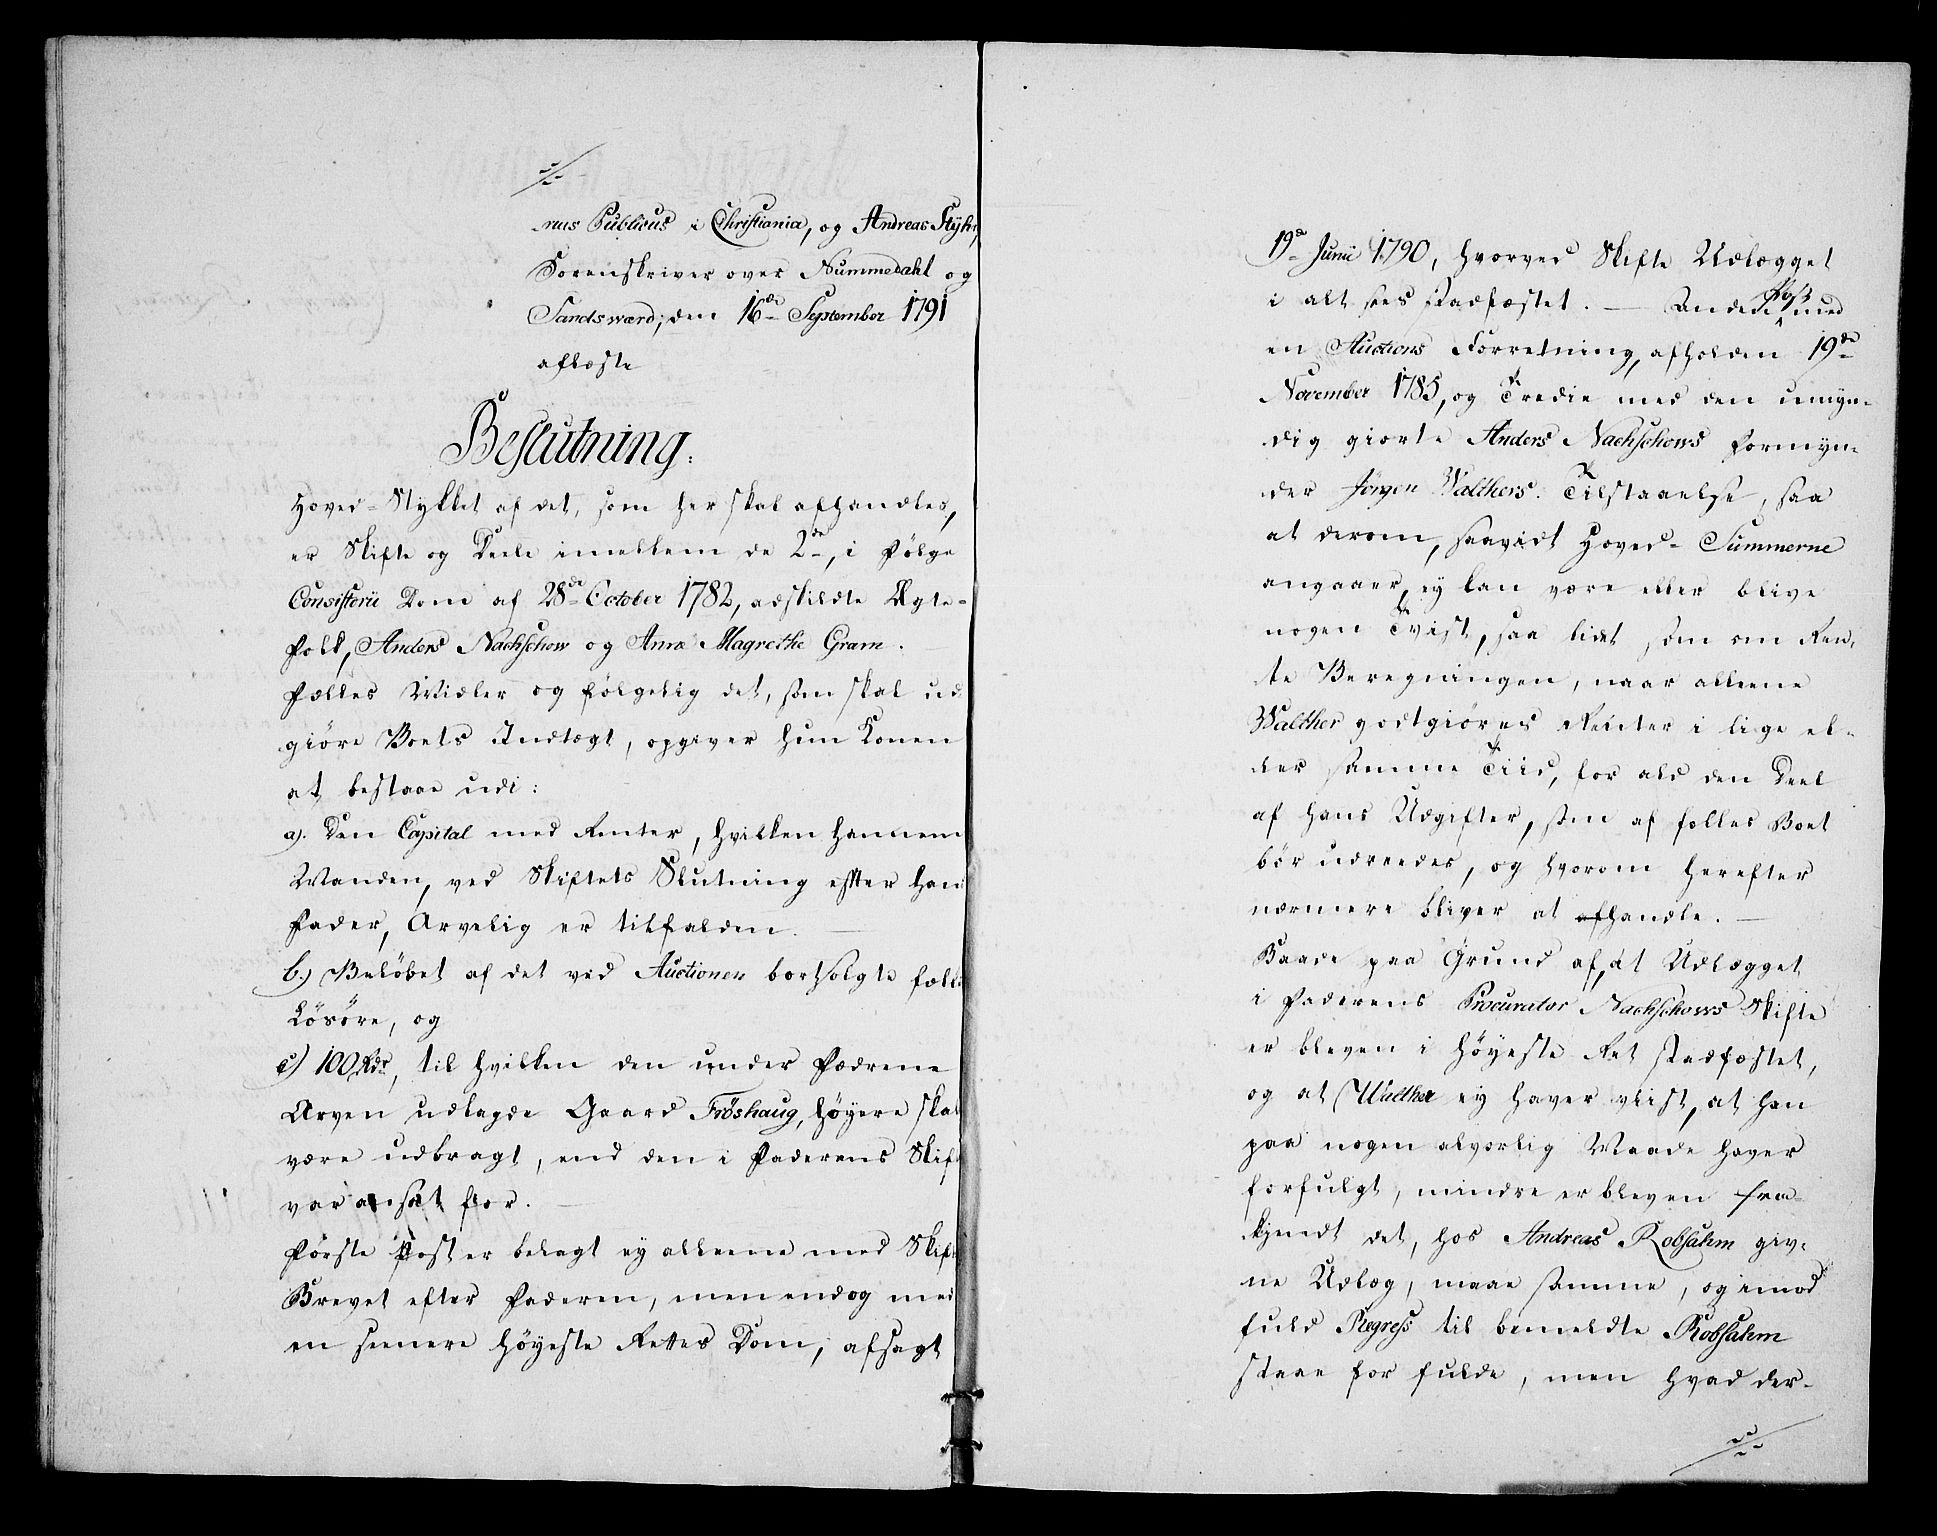 rius Publicus i Christiania, og Andreas Styhr,
Sorenskriver over Nummedahl og
Sandsværd; den 16de September 1791
aflæste
Beslutning:
Hoved-Stykket af det, som her skal afhandles,
er Skifte og Deele imellem de 2de, i Følge
Consistorii Dom af 28de October 1782, adskildte Ægte-
Folk, Anders Nachschow og Anna Magrethe Gram.
Fælles Midler og følgelig det, som skal ud
giöre Boets Indtægt, opgiver hun Konen
at bestaae udi:
a). Den Capital med Renter, hvilken hannem
Manden, ved Skiftets Slutning effter hans
Fader, Arvelig er tilfalden.
b.) Belöbet af det ved Auctionen bortsolgte fælles
Lösöre, og
c) 100 Rdr, til hvilken den under Fædrene
Arven udlagde Gaard Fröshaug, höyere skal
være udbragt, end den i Faderens Skifte
var ansat for.
Förste Post er belagt ey alleene med Skifte
Brevet efter Faderen, men endog med
en sienere Höyeste Rettes Dom, afsagt
19de Junii 1790, hvorved Skifte Udlægget
i alt sees stadfæstet. — Anden Post med
en Auctions Forretning, afholden 19de
November 1785, og Tredie med den umyn-
dig giorte Anders Nachschows Formyn-
der Jörgen Walthers Tilstaaelse, saa
at derom, saavidt Hoved-Summerne
angaaer, ey kan være eller blive
nogen Tvist, saa lidet som om Ren-
te Beregningen, naar alleene
Walther godtgiöres Renter i lige el-
ler samme Tiid, for ald den Deel
af hans Udgifter, som af fælles Boet
bör udreedes, og hvorom herefter
nærmere bliver at afhandle. —
Baade paa Grund af, at Udlægget
i Faderens Procurator Nachschows Skifte
er bleven i Höyeste Ret stadfæstet,
og at Walther ey haver viist, at han
paa nogen alvorlig Maade haver
forfulgt, mindre er bleven fra-
kjendt det, hos Andreas Robsahm giv-
ne Udlæg, maae samme, og imod
fuld Regress til bemeldte Robsahm
staae for fulde, men hvad der-